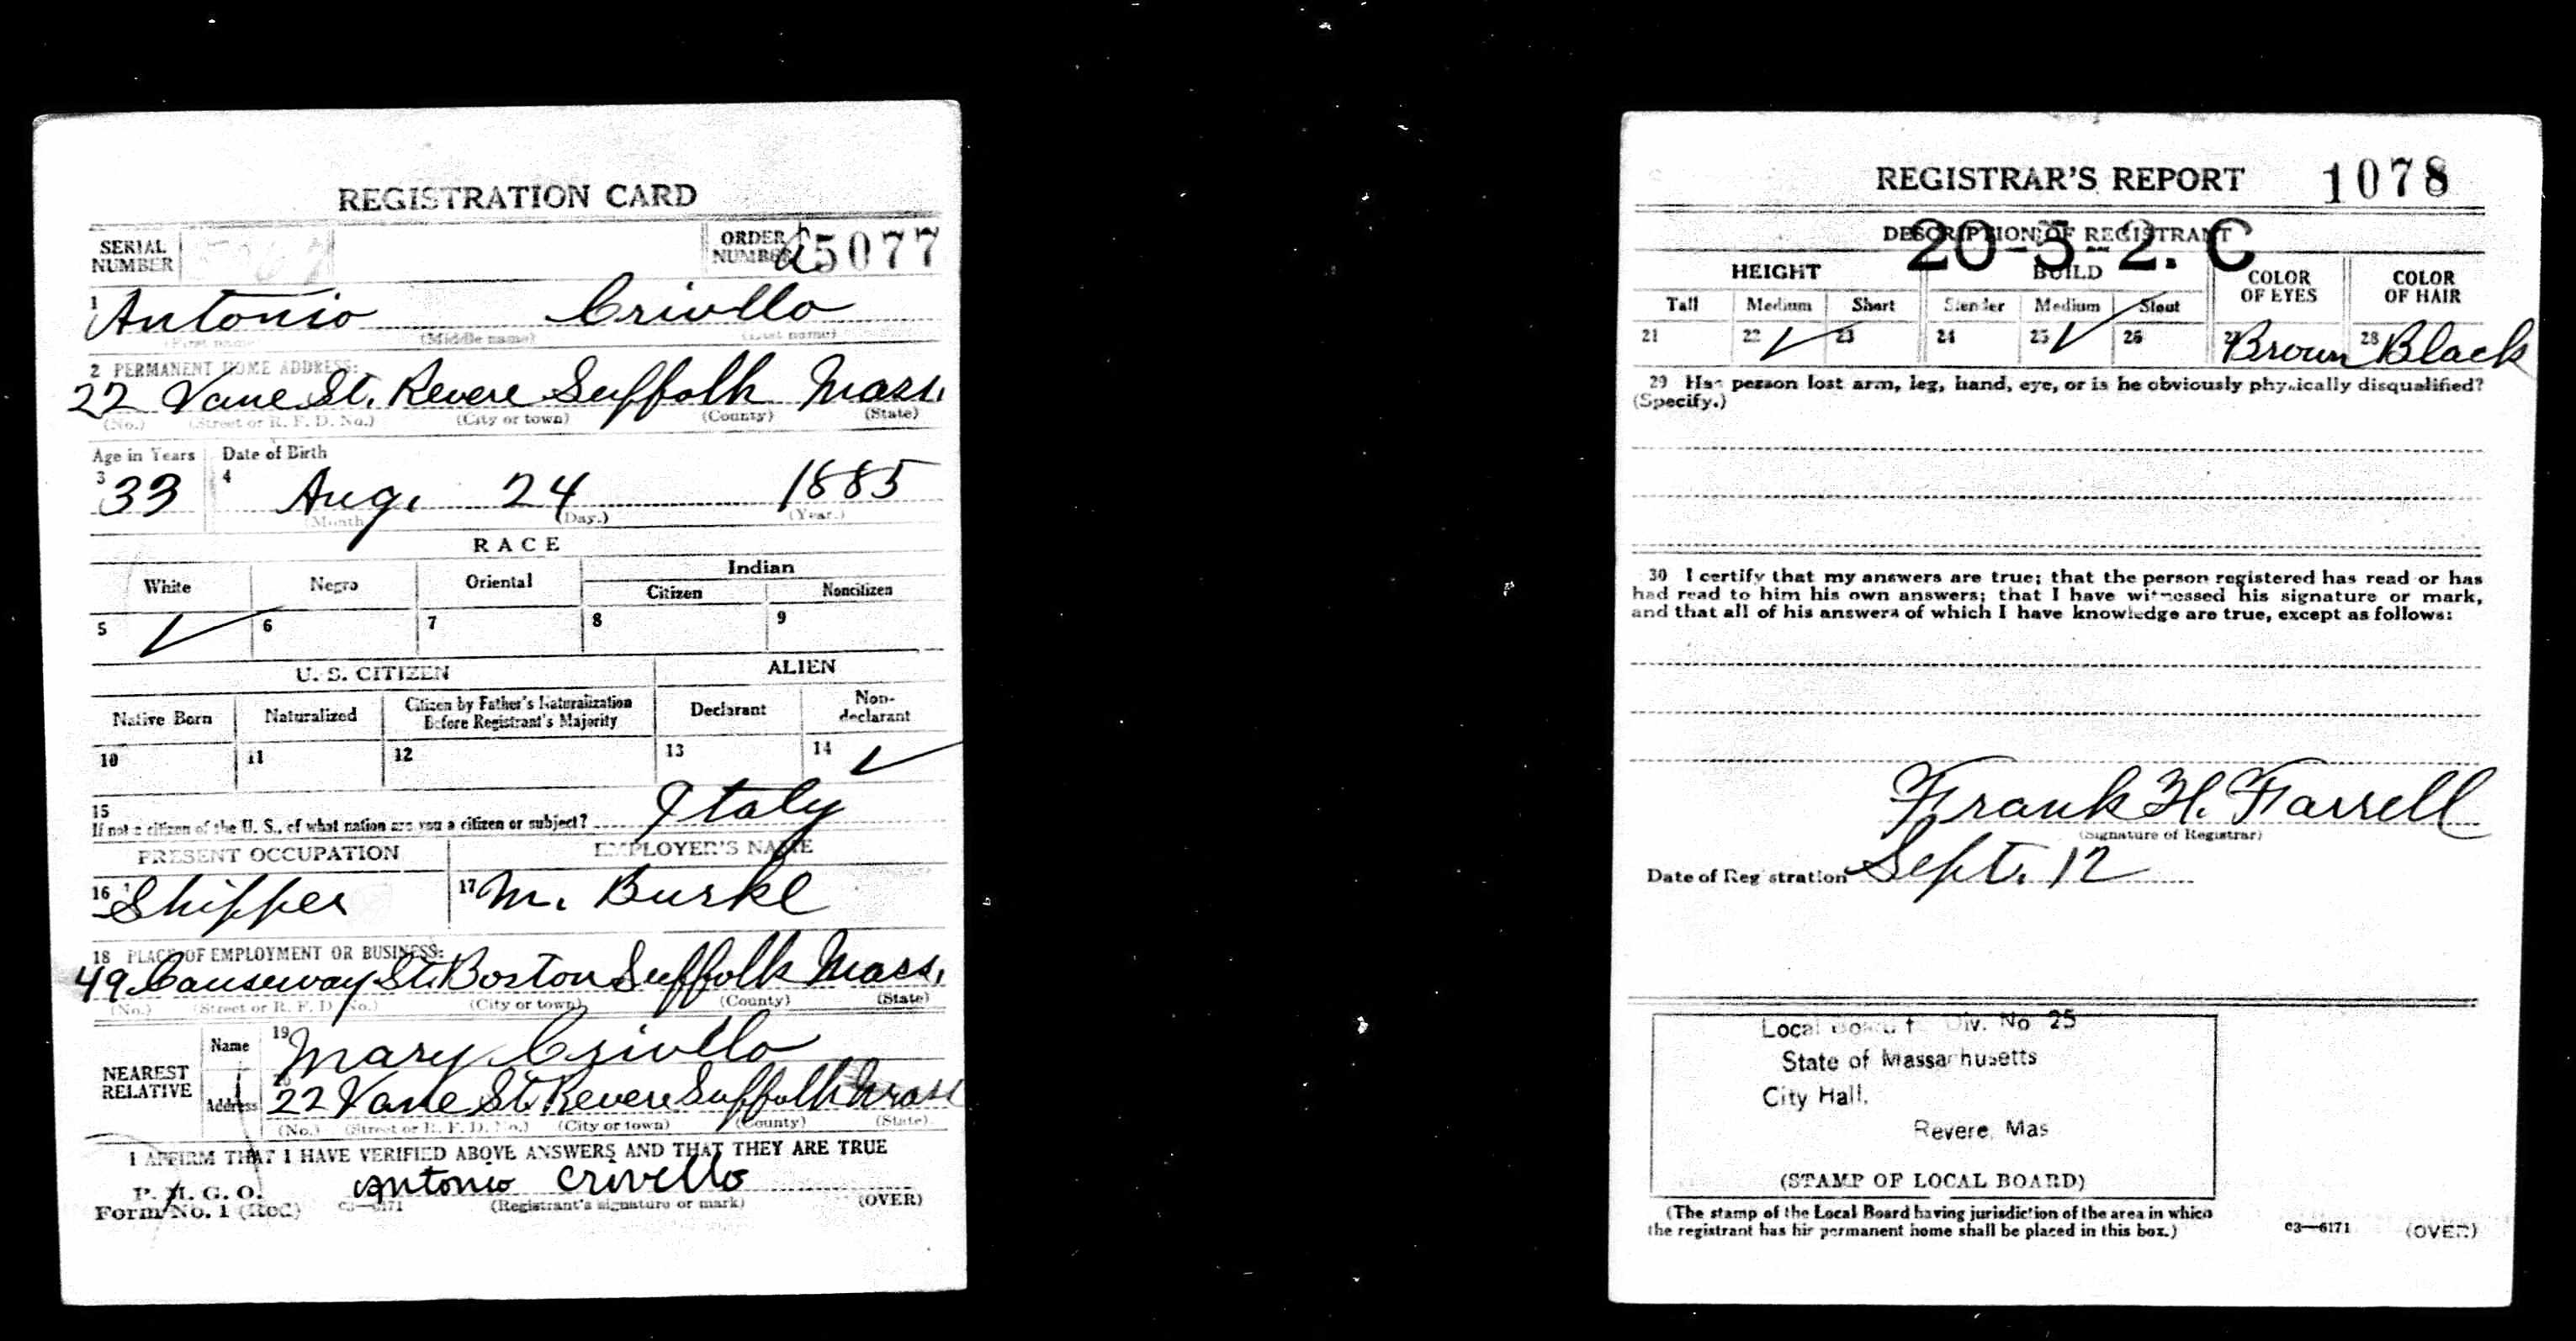 REGISTRATION CARD
SERIAL NUMBER
ORDER NUMBER A5077
1 Antonio Crivello
(First name) (Middle name) (Last name)
2 PERMANENT HOME ADDRESS:
22 Vane St. Revere Suffolk Mass.
(No.) (Street or R. F. D. No.) (City or town) (County) (State)
Age in Years Date of Birth
3 33 4 Aug. 24 1885
(Month.) (Day.) (Year.)
RACE
White Negro Oriental Indian
Citizen Noncitizen
5 ✓ 6 7 8 9
U. S. CITIZEN ALIEN
Native Born Naturalized Citizen by Father's Naturalization Before Registrant's Majority Declarant Non-declarant
10 11 12 13 14 ✓
15 If not a citizen of the U. S., of what nation are you a citizen or subject? Italy
PRESENT OCCUPATION EMPLOYER'S NAME
16 Shipper 17 M. Burke
18 PLACE OF EMPLOYMENT OR BUSINESS:
49 Causeway St. Boston Suffolk Mass.
(No.) (Street or R. F. D. No.) (City or town) (County) (State)
NEAREST RELATIVE
Name 19 Mary Crivello
Address 20 22 Vane St. Revere Suffolk Mass
(No.) (Street or R. F. D. No.) (City or town) (County) (State)
I AFFIRM THAT I HAVE VERIFIED ABOVE ANSWERS AND THAT THEY ARE TRUE
P. M. G. O.
Form No. 1 (Red) c3—6171 Antonio Crivello
(Registrant's signature or mark) (OVER)
REGISTRAR'S REPORT 1078
20-5-2. C
DESCRIPTION OF REGISTRANT
HEIGHT BUILD COLOR OF EYES COLOR OF HAIR
Tall Medium Short Slender Medium Stout
21 22 ✓ 23 24 25 ✓ 26 27 Brown 28 Black
29 Has person lost arm, leg, hand, eye, or is he obviously physically disqualified?
(Specify.)
30 I certify that my answers are true; that the person registered has read or has
had read to him his own answers; that I have witnessed his signature or mark,
and that all of his answers of which I have knowledge are true, except as follows:
Frank H. Farrell
(Signature of Registrar)
Date of Registration Sept. 12
Local Board f Div. No 25
State of Massachusetts
City Hall,
Revere, Mas
(STAMP OF LOCAL BOARD)
(The stamp of the Local Board having jurisdiction of the area in which
the registrant has his permanent home shall be placed in this box.)
c3—6171 (OVER)